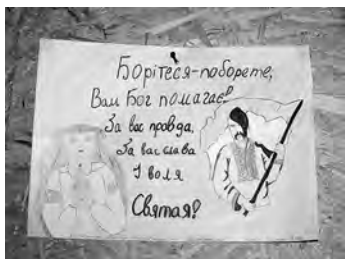 Борітеся-поборете,
Вам Бог помагає!
За вас правда,
За вас слава
І воля
Святая!